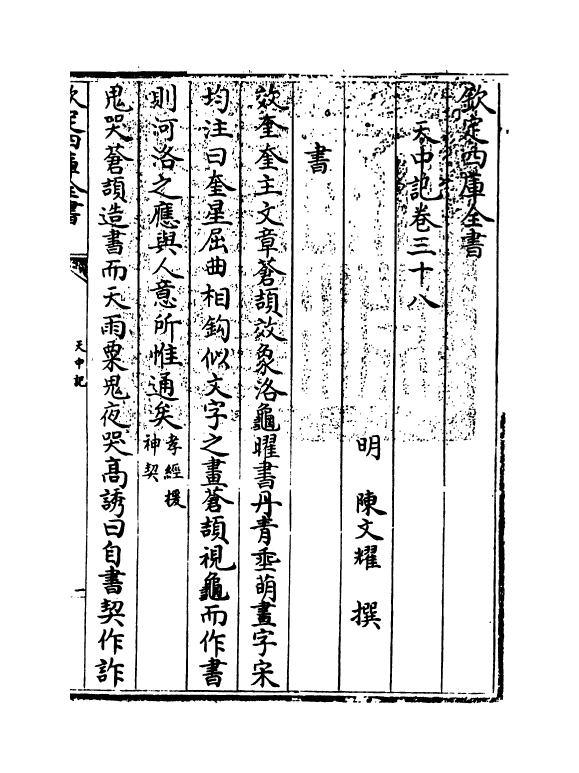 欽定四庫全書
天中記卷三十八
明　陳文耀　撰
書
效奎奎主文章蒼頡效象洛龜曜書丹青垂萌畫字宋
均注曰奎星屈曲相鈎似文字之畫蒼頡視龜而作書
則河洛之應與人意所惟通矣孝經援神契
鬼哭蒼頡造書而天雨粟鬼夜哭高誘曰自書契作詐
欽定四庫全書
天中記
一